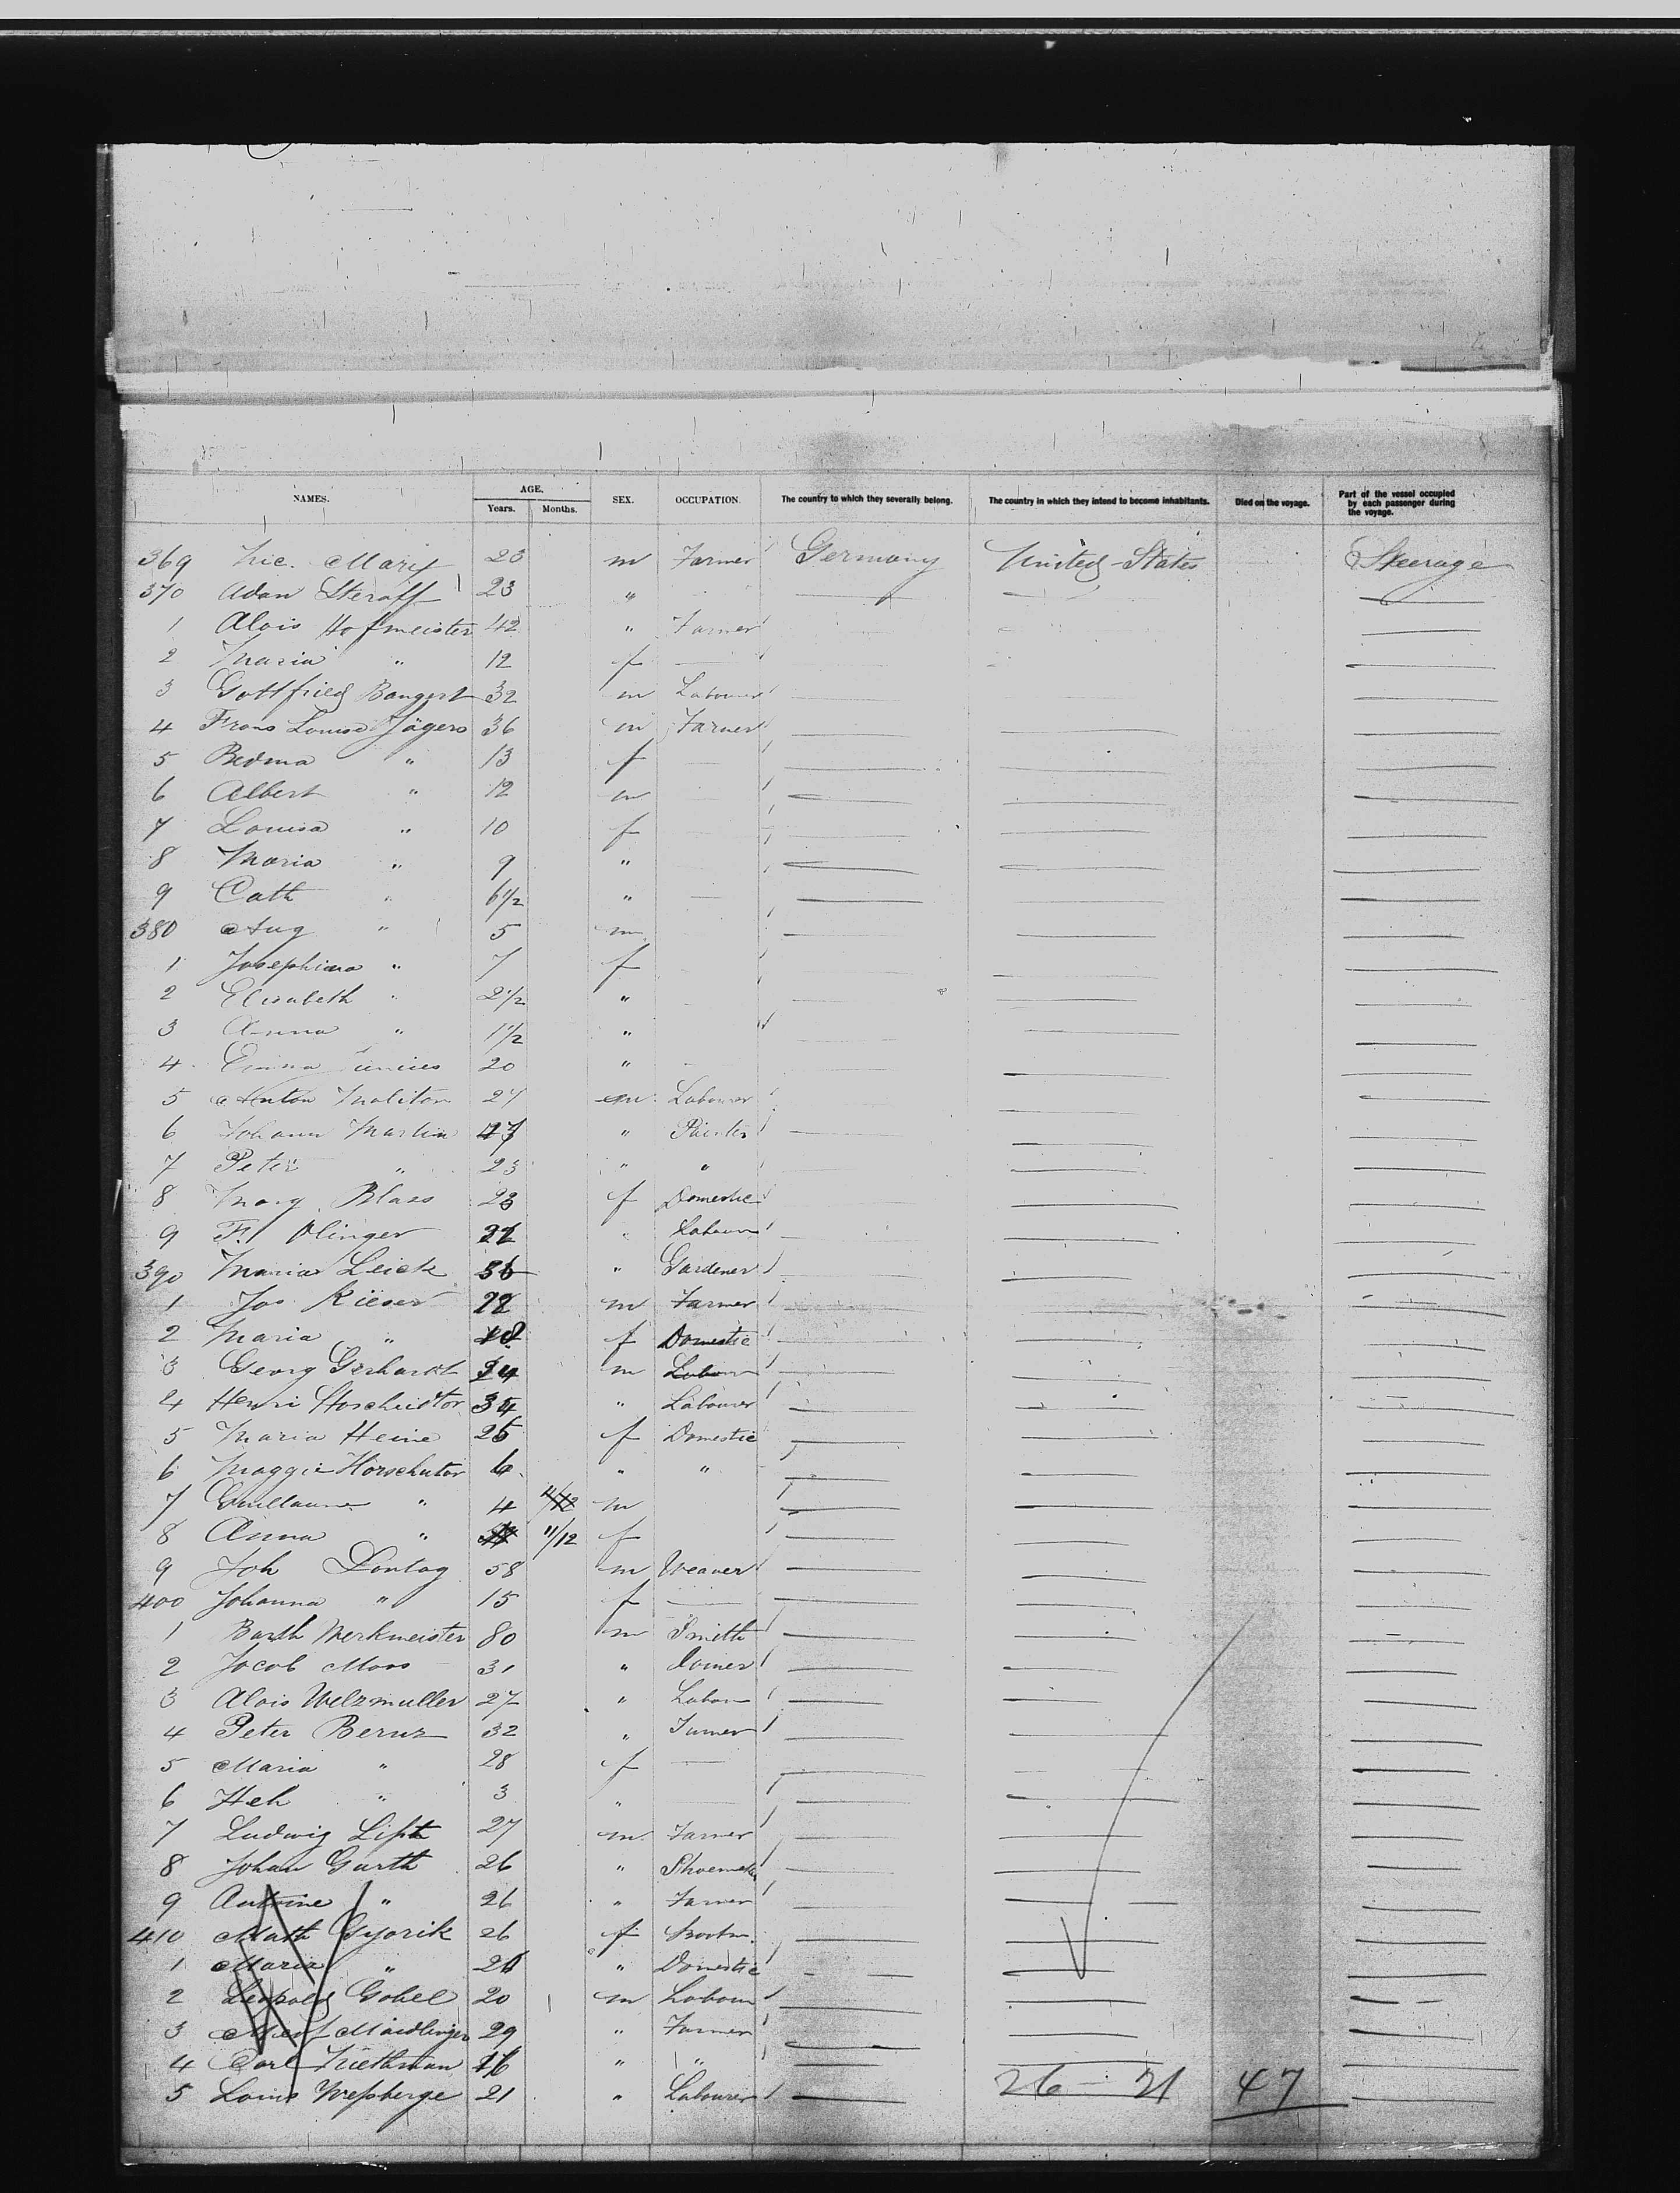 NAMES. AGE. SEX. OCCUPATION. The country to which they severally belong. The country in which they intend to become inhabitants. Died on the voyage. Part of the vessel occupied by each passenger during the voyage.
Years. Months.
369 Nic. Mary 23 m Farmer Germany United States Steerage
370 Adam Steraff 23 "
1 Alois Hofmeister 42 " Farmer
2 Maria " 12 f —
3 Gottfried Bangert 32 m Labourer
4 Frans Louise Jägers 36 m Farmer
5 " 13 f
6 Albert " 12 m
7 Louisa " 10 f
8 Maria " 9 "
9 Cath " 6 1/2 " —
380 Aug " 5 m
1 Josephina " 7 f
2 Elisabeth " 2 1/2 "
3 Anna " 1 1/2 "
4 Emma 20 "
5 Anton Molitor 27 m Labourer
6 Johann Martin "
7 Peter " 23 " "
8 Mary Blass 23 f Domestic
9 F. Olinger Labour
390 Maria Leick 36 " Gardener
1 Jos Kieser 28 m Farmer
2 Maria " f Domestic
3 Georg Gerhardt 24 m Labour
4 Henri 34 " Labourer
5 Maria Heine 25 f Domestic
6 Maggie 6 " "
7 Guillaume " 4 m
8 Anna " 11/12 f
9 Joh Dontag 58 m Weaver
400 Johanna " 15 f —
1 Barth Werkmeister 80 m Smith
2 Jacob Moos 31 " Joiner
3 Alois Welzmuller 27 " Labour
4 Peter Bernz 32 "
5 Maria " 28 f —
6 Heh " 3 " —
7 Ludwig 27 m Farmer
8 Johan Gurth 26 " Shoemaker
9 Antoine " 26 " Farmer
410 Math Gyorik 26 f
1 Maria " " Domestic
2 Leopold Gobel 20 m Labour
3 Maidlinger 29 " Farmer
4 Carl Triethman " "
5 Louis 21 " Labourer
26 — 21 47